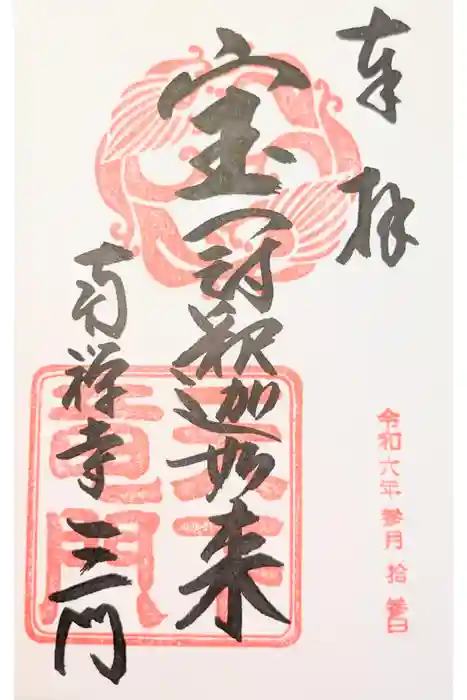 奉拝
令和六年 参月 拾参日
宝冠釈迦如来
南禅寺 三門